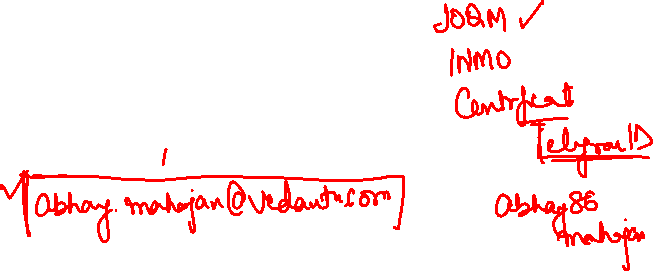 IOQM ✓
INMO
Centrfcat
Telegram ID
abhay.mahajan@vedantu.com
abhay86
mahajan